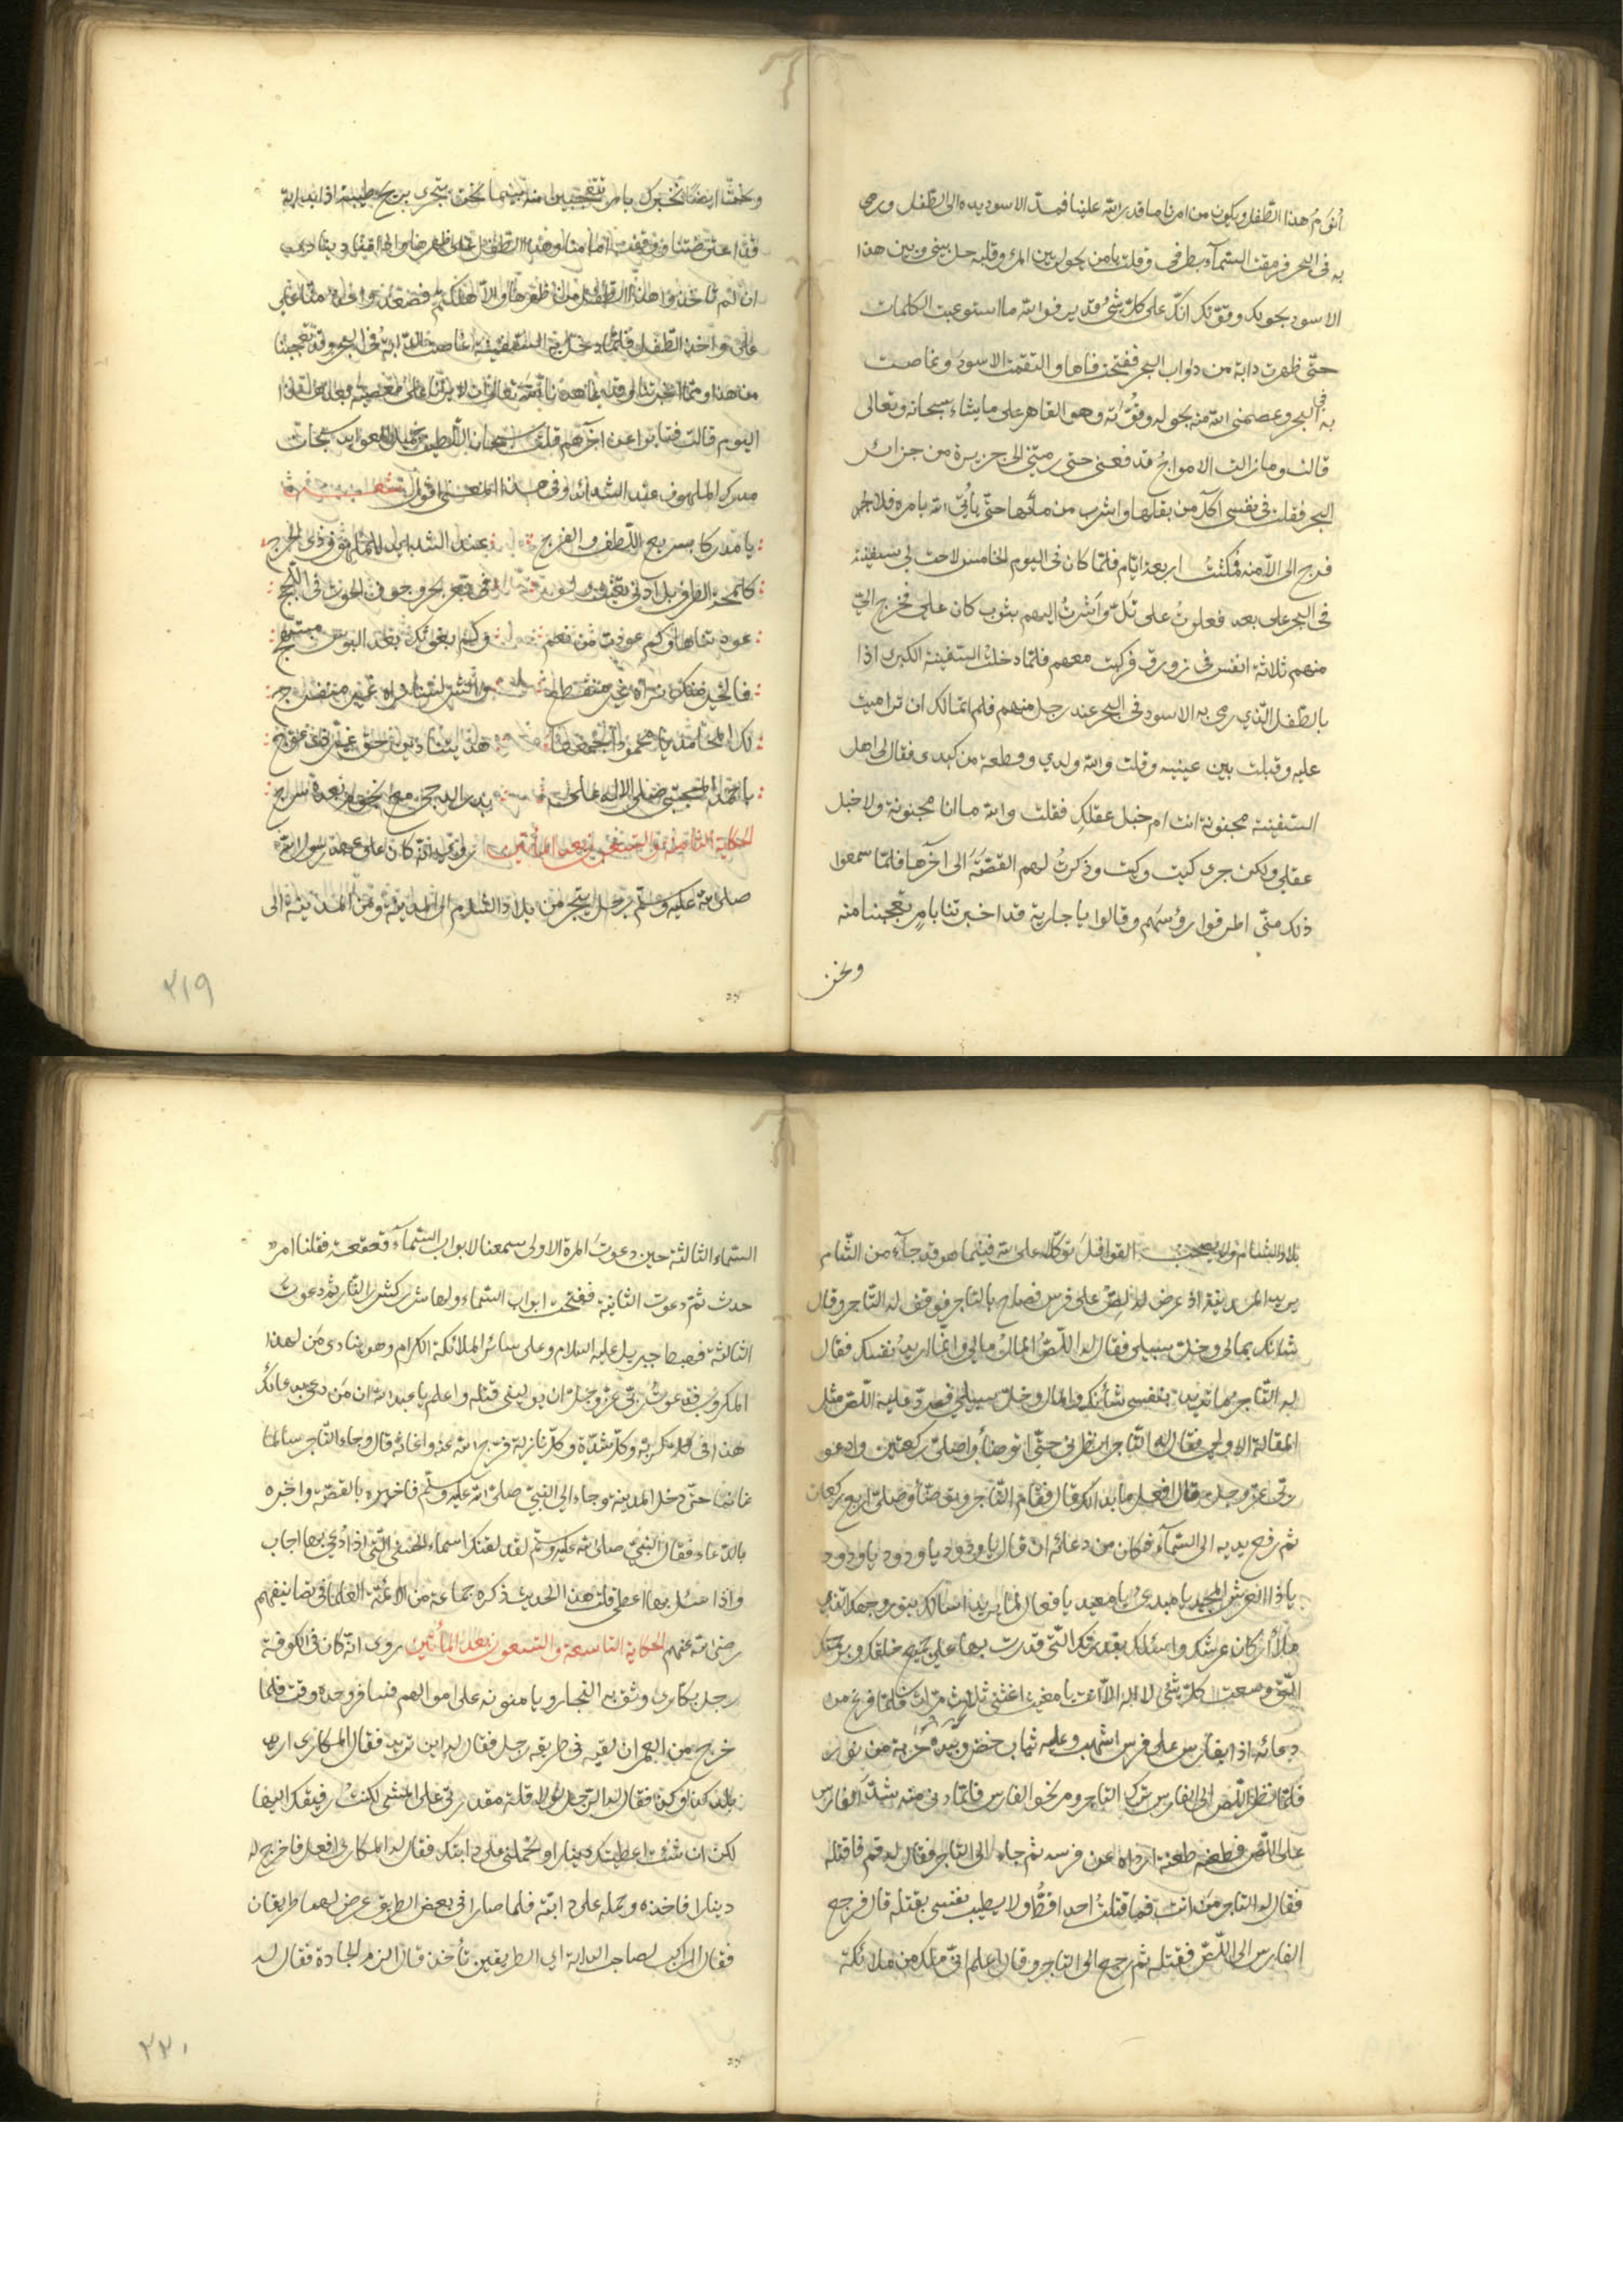 أنوّم هذا الطّفل ويكون من امرنا ما قدر الله علينا فمدّ الاسود يده الى الطّفل ورمى
به فى البحر فرمقت السّمآء بطرفى وقلت يا من يحول بين المرء وقلبه حل بينى وبين هذا
الاسود بحولك وقوّتك انّك على كلّ شئ قدير فو الله ما استوعبت الكلمات
حتّى ظهرت دابة من دوابّ البحر ففتحت فاها والتقمت الاسود وغاصت
به فى البحر وعصمنى الله منه بحوله وقوّته وهو القاهر على ما يشاء سبحانه وتعالى
قالت وما زالت الامواج تدفعنى حتى رمتنى الى جزيرة من جزائر
البحر فقلت فى نفسى آكل من بقلها واشرب من مآئها حتّى يأتى الله بامره فلا
فرج الى الّا منه فمكثت اربعة ايّام فلمّا كان فى اليوم الخامس لاحت لى سفينة
فى البحر على بعد فعلوت على تلّ واشرت اليهم بثوب كان على فخرج الىّ
منهم ثلاثة انفس فى زورق فركبت معهم فلمّا دخلت السّفينة الكبرى اذا
بالطّفل الّذي رمى به الاسود فى البحر عند رجل منهم فلم اتمالك ان تراميت
عليه وقبلت بين عينيه وقلت والله ولدي وقطعة من كبدى فقال لى اهل
السّفينة مجنونة انت ام خبل عقلكِ فقلت والله ما انا مجنونة ولا خبل
عقلى ولكن جرى كيت وكيت وذكرت لهم القصّة الى آخرها فلمّا سمعوا
ذلك منّى اطرقوا رؤسهم وقالوا يا جارية قد اخبرتنا بامرٍ تعجّبنا منه
ونحن
ونحن ايضا نخبرك بامر تتعجبين منه بينما نحن نجرى بريح طيبة اذا بدابة
قد اعترضتنا ووقفت امامنا وهذا الطّفل على ظهرها واذا مناد ينادى
ان لم تأخذوا هذا الطّفل من ظهرها والّا هلكتم فصعد واحد منّا على
واخذ الطّفل فلمّا دخل به السّفينة غاصت الدّابة فى البحر وقد تعجّبنا
من هذا وممّا اخبرتنا وقد عاهدنا الله تعالى ان لا يرانا على معصية بعد هذا
اليوم قالت فتابوا عن آخرهم قلت سبحان اللّطيف جميل العوايد سبحان
مدرك الملهوف عند الشدائد وفى هذا المعنى اقول شعر
يا مدركا بسريع اللّطف والفرج عند الشدايد للملهوف ذى الحرج
جوف الحوت فى اللّجج
لك المحامد يا محمود
الحكاية الثامنة والتسعون بعد المأتين روى انّه كان على عهد رسول الله
صلى الله عليه وسلّم رجل يتّجر من بلاد الشام الى المدينة ومن المدينة الى
بلاد الشام ولا يصحب القوافل توكّلا على الله فبينما هو قد جآء من الشّام
يريد المدينة اذ عرض له لصّ على فرس فصاح بالتاجر فوقف له التّاجر وقال
شانك بمالى وخلّ سبيلى فقال له اللّصّ المال مالى وانّما اريد نفسك فقال
له التّاجر ما تريد بنفسى شأنك والمال وخلّ سبيلى فردّ عليه اللّصّ مثل
المقالة الاولى فقال له التّاجر انظرنى حتّى اتوضأ واصلّى ركعتين وادعو
ربّى عزّ وجلّ قال افعل ما بدا لك قال فقام التّاجر وتوضّأ وصلّى اربع ركعات
ثم رفع يديه الى السّمآء فكان من دعائه ان قال يا ودود يا ودود يا ودود
يا ذا العرش المجيد يا مبدئ يا معيد يا فعّال لما يريد اسالك بنور وجهك الّذى
ملأ اركان عرشك واسئلك بقدرتك الّتى قدرت بها على جميع خلقك وبرحمتك
الّتى وسعت كلّ شئ لا اله الّا انت يا مغيث اغثنى ثلاث مرّات فلمّا فرغ من
دعائه اذا بفارس على فرس اشهب وعليه ثياب خضر وبيده حربة من نور
فلمّا نظر اللّص الى الفارس ترك التاجر ومرّ نحو الفارس فلمّا دنى منه شدّ الفارس
على اللّصّ فطعنه طعنة ارداه عن فرسه ثم جاء الى التاجر فقال له قم فاقتله
فقال له التاجر من انت فما قتلت احدا قطّ ولا يطيب نفسى بقتله قال فرجع
الفارس الى اللّصّ فقتله ثم رجع الى التاجر وقال اعلم انّى ملك من ملائكة
السّماء الثالثة حين دعوت المرة الاولى سمعنا لابواب السّمآء قعقعة فقلنا امر
حدث ثمّ دعوت الثانية ففتحت ابواب السّماء ولها شرر كشرر النّار ثمّ دعوت
الثالثة فهبط جبريل عليه السلام وعلى سائر الملائكة الكرام وهو ينادى من لهذا
المكروب فدعوت ربّى عزّ وجلّ ان يولينى قتله واعلم يا عبد الله ان من دعى بدعائك
هذا فى كل كربة وكلّ شدّة وكلّ نازلة فرّج الله عنه واغاثه قال وجاء التّاجر سالما
غانما حتّى دخل المدينة وجاء الى النبىّ صلى الله عليه وسلّم فاخبره بالقصّة واخبره
بالدّعاء فقال النّبىّ صلى الله عليه وسلّم لقد لقنك اسماءه الحسنى الّتى اذا دعى بها اجاب
واذا سئل بها اعطى قلت هذا الحديث ذكره جماعة من الائمّة العلما فى تصانيفهم
رضى الله عنهم الحكاية التاسعة والتسعون بعد المأتين روى انّه كان فى الكوفة
رجل مكارى وثق به التجار ويامنونه على اموالهم فسافر وحده وقت فلما
خرج من العمران لقيه فى طريقه رجل فقال له اين تريد فقال المكارى اريد
بلد كذا وكذا فقال له الرّجل لولا قلة مقدرتى على المشى لكنت رفيقك اليها
لكن ان شئت اعطيتك دينارا وتحملنى على دابتك فقال له المكارى افعل فاخرج له
دينارا فاخذه وحمله على دابته فلما صارا فى بعض الطريق عرض لهما طريقان
فقال الراكب لصاحب الدابة اى الطريقين تأخذ قال الزم الجادة فقال له
٣١٩
٣٢٠